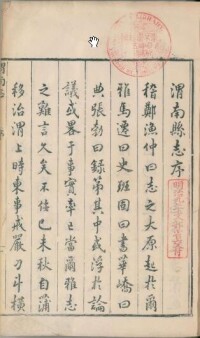 渭南縣志序
稽鄭漁仲曰志之大原起於爾
雅馬遷曰史班固曰書華嶠曰
典張勃曰錄第其中或浮於論
議或畧于事實率乞當爾雅志
之難言久矣不佞己未秋自蒲
移治渭上時東事戒嚴刁斗橫
渭南志
序